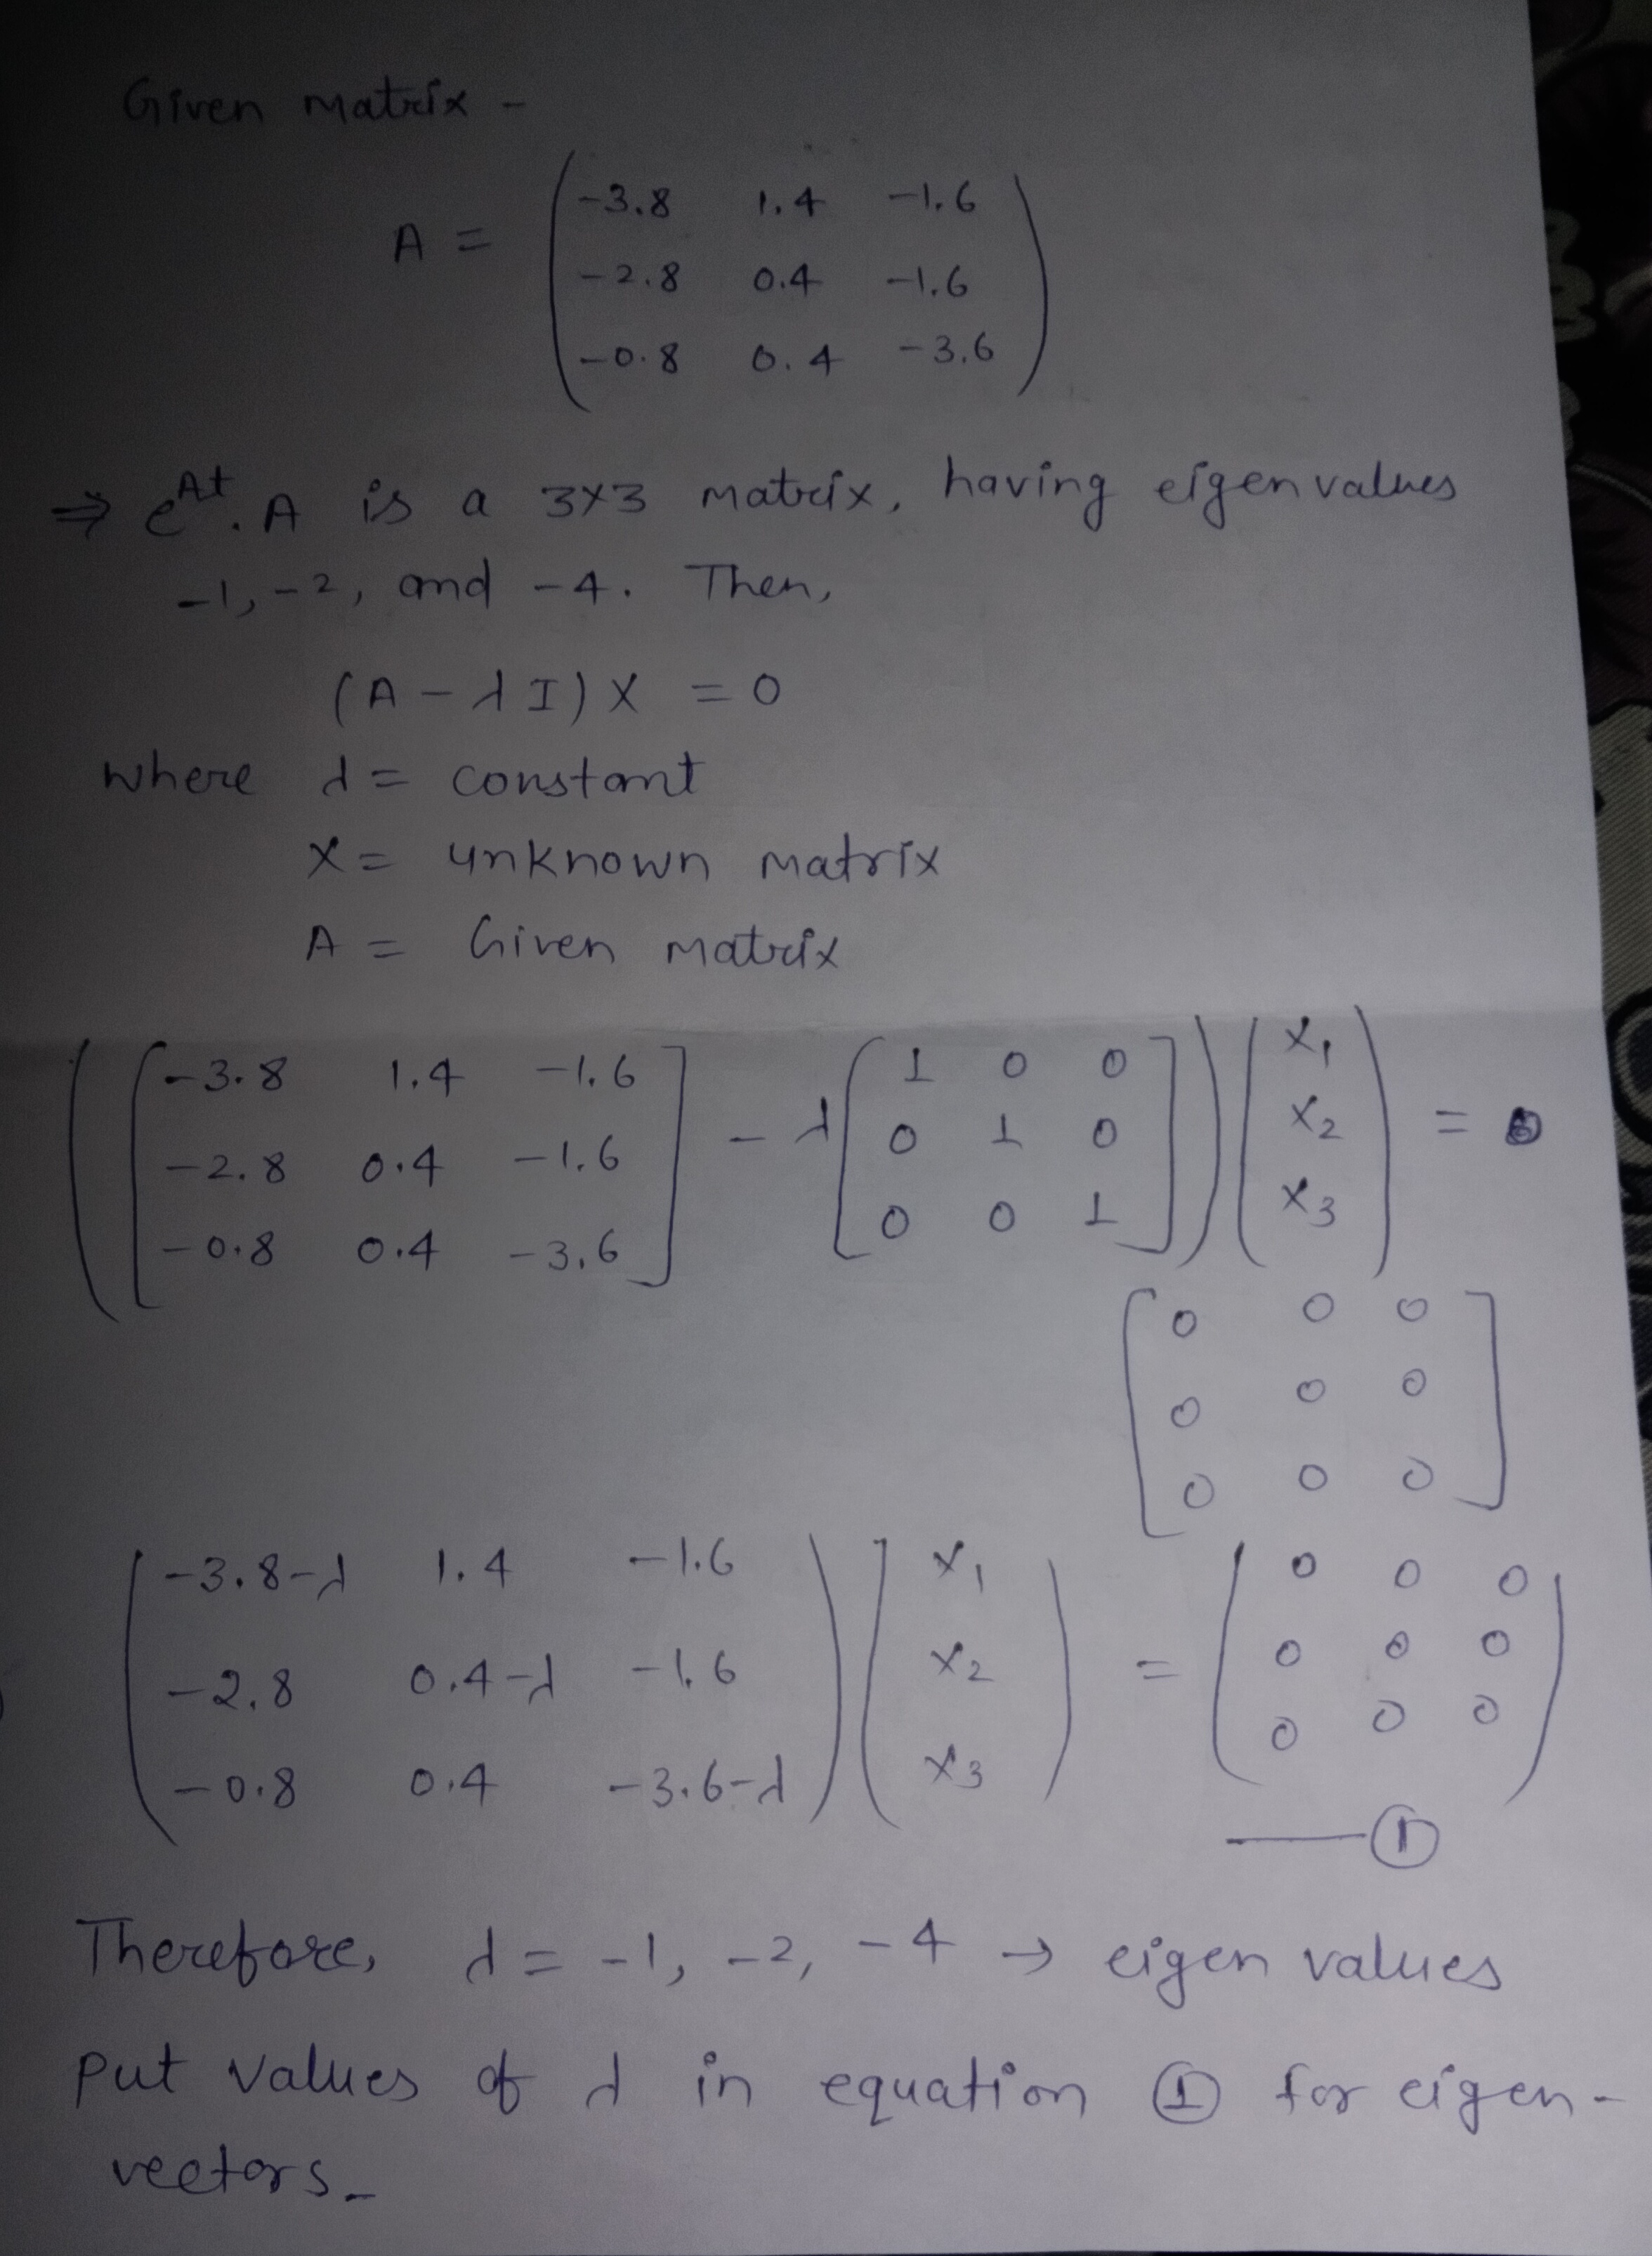 Given matrix -
A = ( -3.8 1.4 -1.6
-2.8 0.4 -1.6
-0.8 0.4 -3.6 )
⇒ e^At. A is a 3×3 matrix, having eigen values
-1, -2, and -4. Then,
(A - λI) X = 0
where λ = constant
X = unknown matrix
A = Given matrix
( [ -3.8 1.4 -1.6 ] - λ [ 1 0 0 ] ) ( x1 ) = 0
-2.8 0.4 -1.6 0 1 0 x2
-0.8 0.4 -3.6 0 0 1 x3
[ 0 0 0
0 0 0
0 0 0 ]
( -3.8-λ 1.4 -1.6 ) ( x1 ) = ( 0 0 0 )
-2.8 0.4-λ -1.6 x2 0 0 0
-0.8 0.4 -3.6-λ x3 0 0 0
— ①
Therefore, λ = -1, -2, -4 → eigen values
Put values of λ in equation ① for eigen-
vectors -